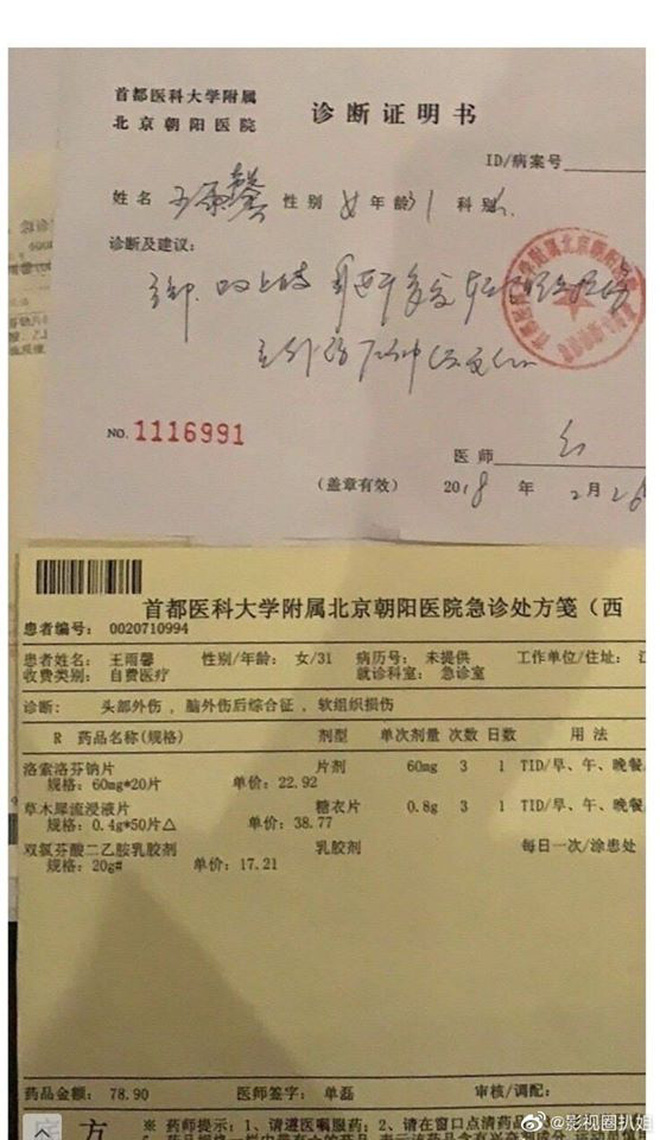 首都医科大学附属
北京朝阳医院
诊断证明书
ID/病案号
姓名 王雨馨 性别 女 年龄 31 科别
诊断及建议:
NO. 1116991
医师
(盖章有效) 2018 年 2 月 26
首都医科大学附属北京朝阳医院急诊处方笺（西
患者编号: 0020710994
患者姓名: 王雨馨 性别/年龄: 女/31 病历号: 未提供 工作单位/住址:
收费类别: 自费医疗 就诊科室: 急诊室
诊断: 头部外伤，脑外伤后综合征，软组织损伤
R 药品名称(规格) 剂型 单次剂量 次数 日数 用法
洛索洛芬钠片 片剂 60mg 3 1 TID/早、午、晚餐
规格: 60mg*20片 单价: 22.92
草木犀流浸液片 糖衣片 0.8g 3 1 TID/早、午、晚餐
规格: 0.4g*50片△ 单价: 38.77
双氯芬酸二乙胺乳胶剂 乳胶剂 每日一次/涂患处
规格: 20g# 单价: 17.21
药品金额: 78.90 医师签字: 单磊 审核/调配:
方 ※ 药师提示: 1、请遵医嘱服药; 2、请在窗口点清药品
@影视圈扒姐